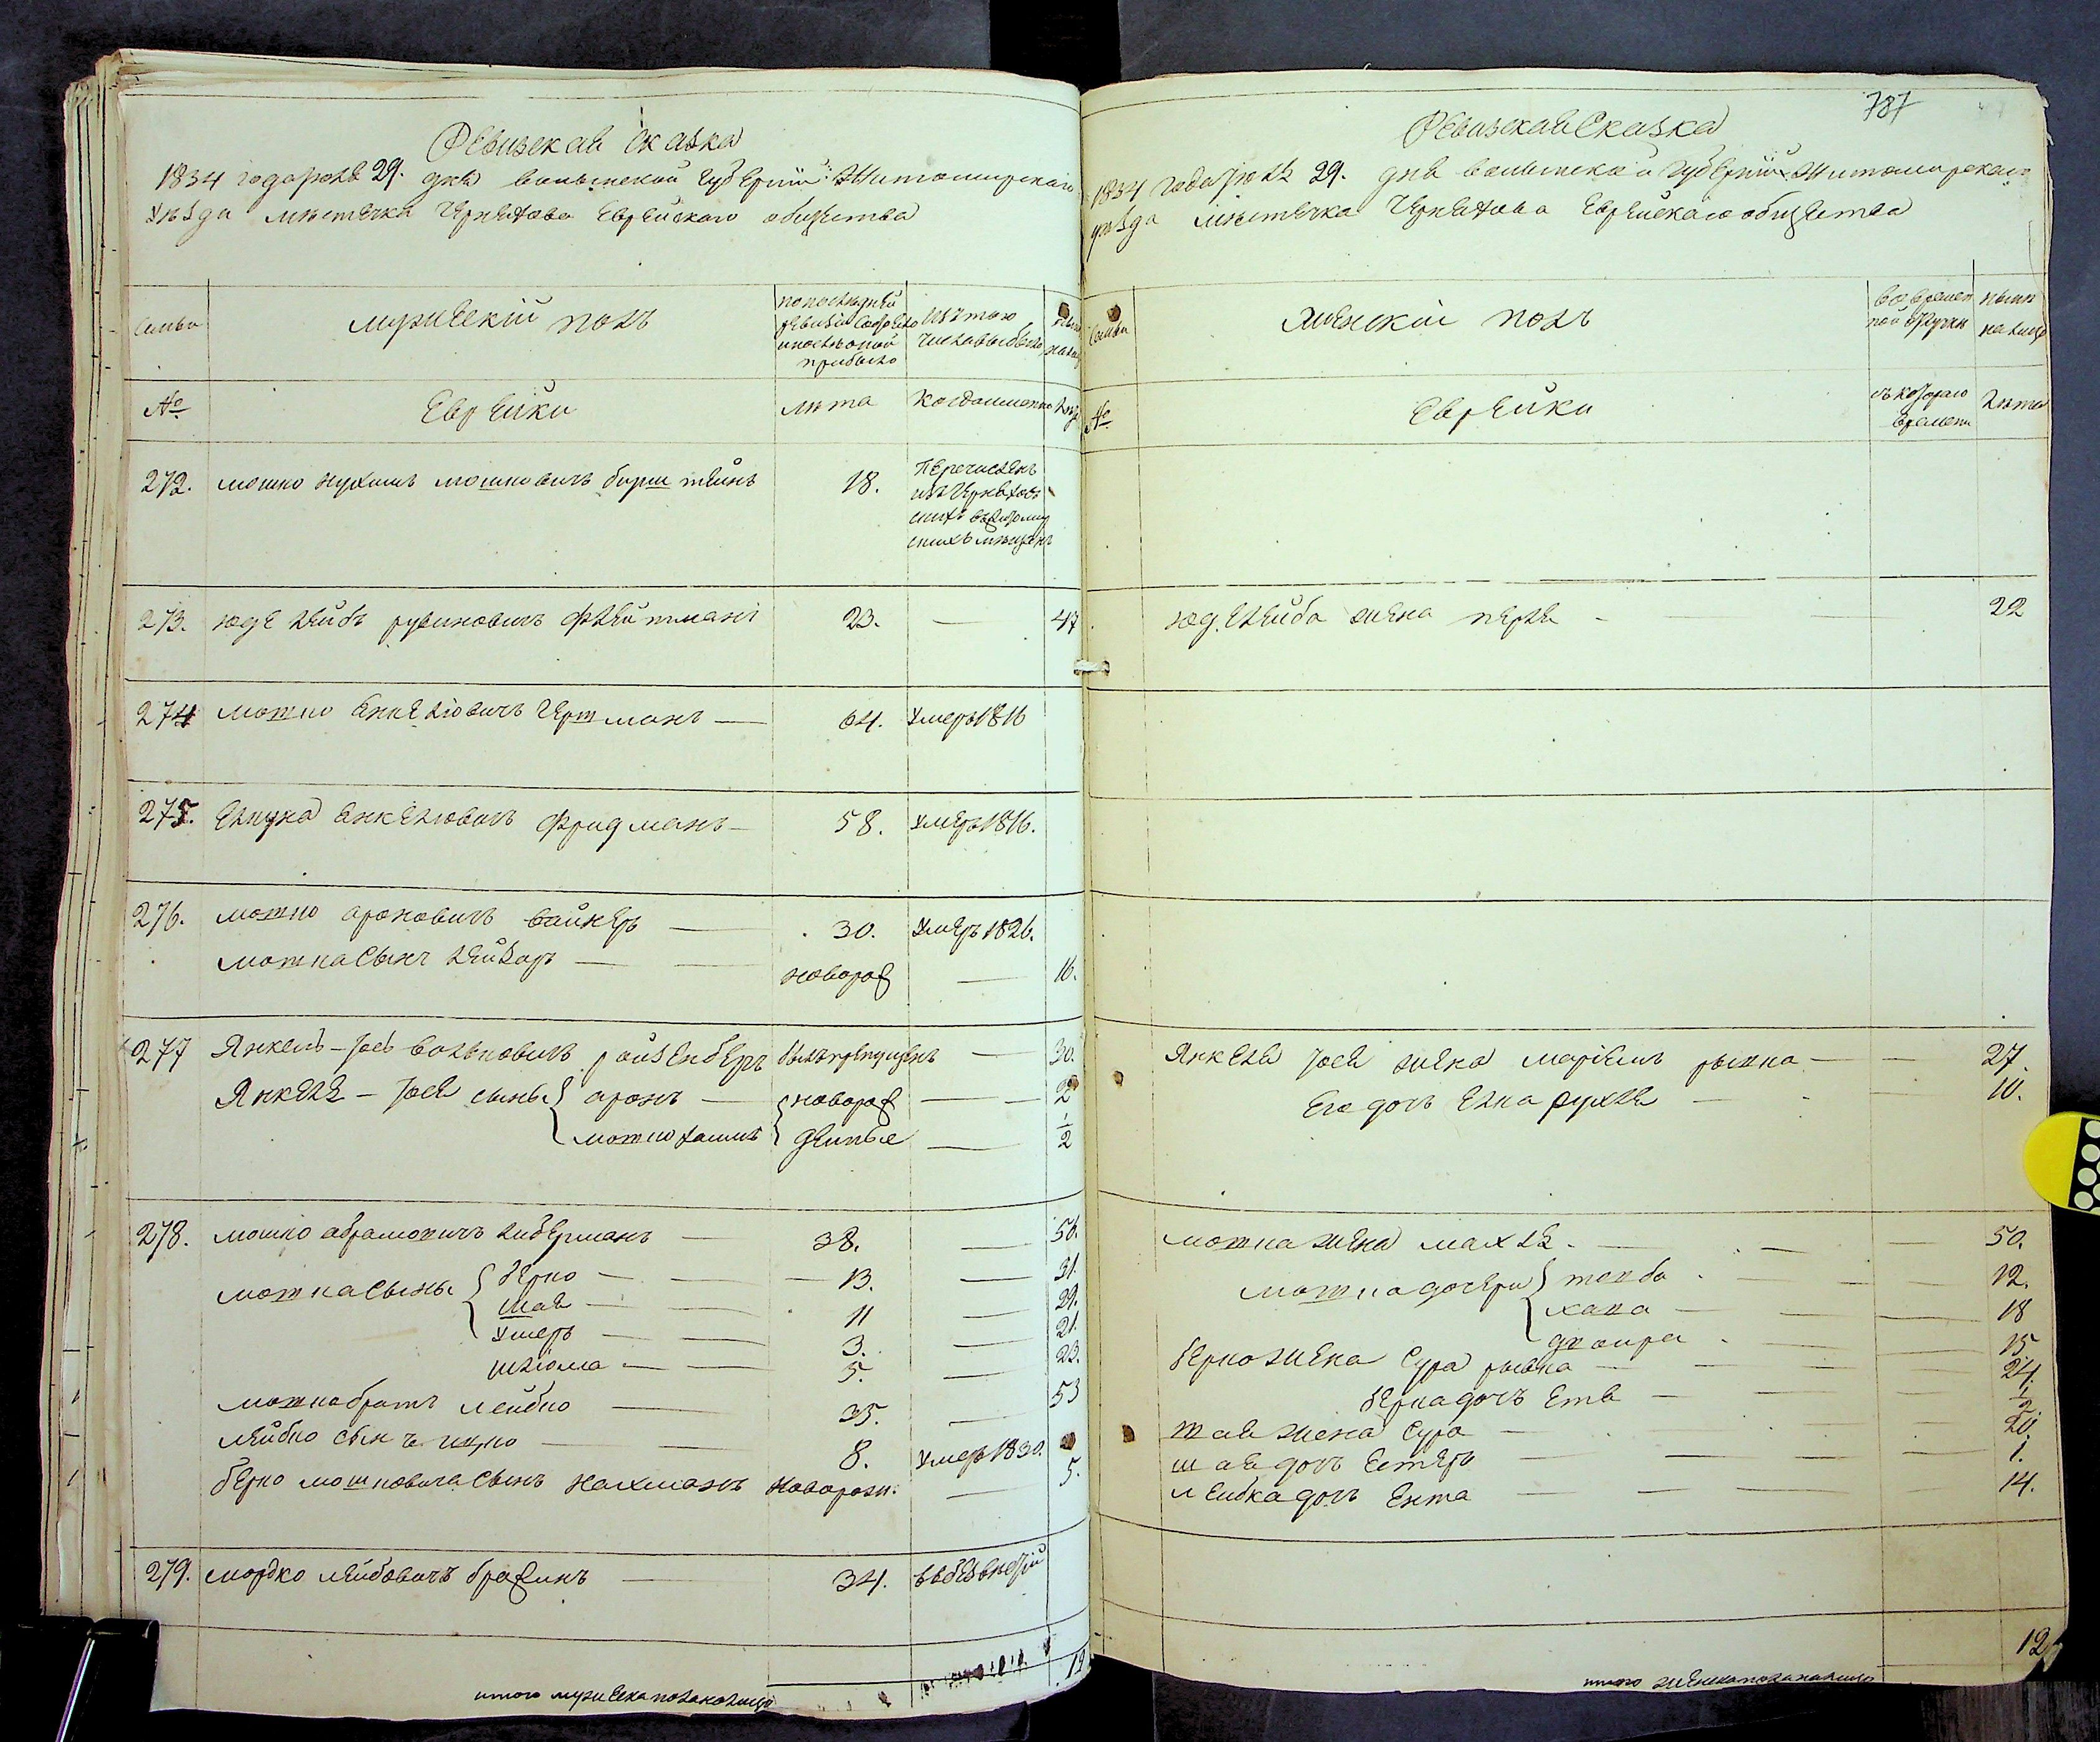 Ревизская сказка
1834 года июля 29. дня волынской губерніи Житомирскаго
уѣзда мѣстечка Черняхова Еврейского общества
семьи
мужескій полъ
по последней
ревизіи состояло
и после оной
прибыло
изъ того
числа выбыло
ныне
налицо
№
Еврейки
лѣта
когда именно
лѣта
272. мошко нухимъ мошковичъ бурштейнъ 18. Перечисленъ
изъ Черняхов
скихъ въ Житомир
скихъ мѣщанъ
273. юде лейбъ рувиновичъ флейтманъ 23. — 47
274 мошко янкелювичъ гертманъ — 64. умеръ 1816
275. янкелювичъ фридманъ — 58. умеръ 1816.
276. мошко ароновичъ вайнеръ — 30. умеръ 1826.
мошка сынъ лейзоръ — новорож — 16.
277 Янкель-Іось волковичъ ройзенберъ былъ пропущенъ — 30.
Янкеля-Іося сыны { аронъ — { новорож — 2
мошко хаимъ } денные — 1/2
278. мошко абрамовичъ либерманъ — 38. — 56.
мошка сыны { берко — 13. — 31.
шая — 11 — 29.
умеръ — 3. — 21.
шлiома — 5. — 23.
мошка братъ лейбко — 35. — 53
лейбко сынъ ицко — 8. умеръ 1830.
берко мошковича сынъ нахманъ новорож. — 5.
279. мордко лейбовичъ 34.
итого мужеска пола налицо 12
787
Ревизская Сказка
1834 года июля 29. дня волынской губерніи Житомирскаго
уѣзда мѣстечка Черняхова Еврейскаго общества
семьи
женскій полъ
во времен
ной отлучки
ныне
на лицо
№
Еврейки
съ котораго
времени
лѣта
юде лейба жена перля — 22
Янкеля Іося жена маріемъ рывка — 27.
Его дочь рухля — 10.
мошка жена махля — 50.
мошка дочери { тойба — 12.
хана — 18
двойра — 15
берко жена сура рывка — 24.
берка дочь Етя — 1/2
шая жена Сура — 20.
шая дочь Естеръ — 1.
лейбка дочь Ента — 14.
итого женска пола налицо 12